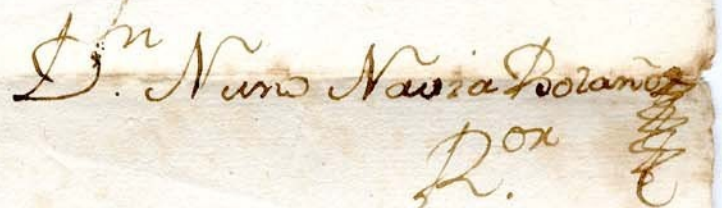 Dn. Nuno Navia Bolaño
Ror.